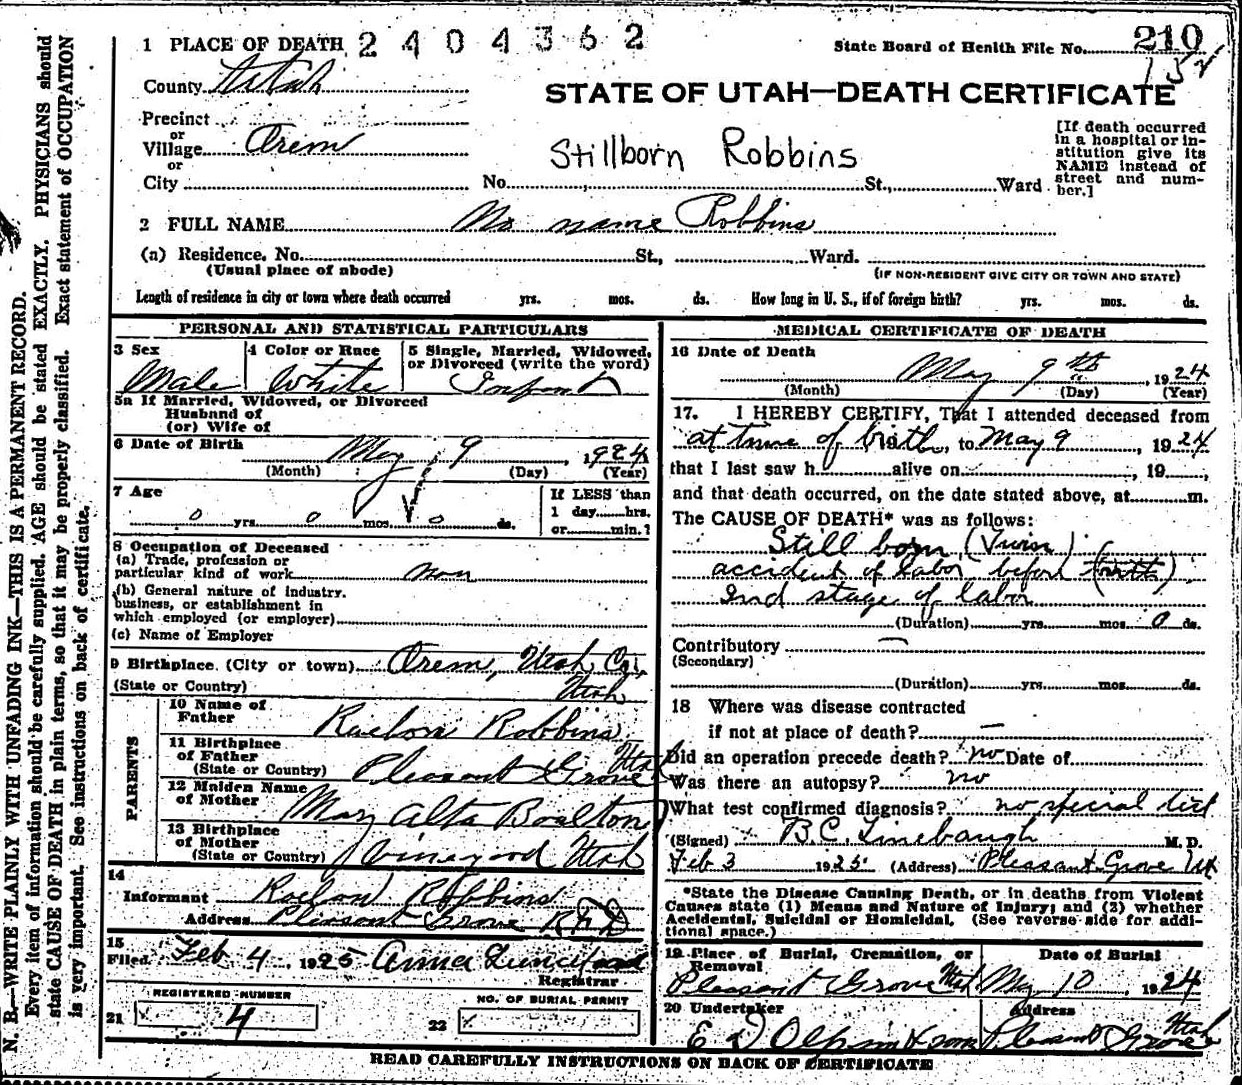 1 PLACE OF DEATH 2404362
State Board of Health File No. 210
County Utah
STATE OF UTAH—DEATH CERTIFICATE
Precinct
or
Village Orem
or
City
Stillborn Robbins
No. St., Ward
[If death occurred
in a hospital or in-
stitution give its
NAME instead of
street and num-
ber.]
2 FULL NAME No name Robbins
(a) Residence. No. St., Ward.
(Usual place of abode)
(IF NON-RESIDENT GIVE CITY OR TOWN AND STATE)
Length of residence in city or town where death occurred yrs. mos. ds. How long in U. S., if of foreign birth? yrs. mos. ds.
PERSONAL AND STATISTICAL PARTICULARS
3 Sex
Male
4 Color or Race
White
5 Single, Married, Widowed,
or Divorced (write the word)
Infant
5a If Married, Widowed, or Divorced
Husband of
(or) Wife of
6 Date of Birth May 9, 1924
(Month) (Day) (Year)
7 Age
0 yrs. 0 mos. 0 ds.
If LESS than
1 day hrs.
or min.?
8 Occupation of Deceased
(a) Trade, profession or
particular kind of work non
(b) General nature of industry,
business, or establishment in
which employed (or employer)
(c) Name of Employer
9 Birthplace (City or town) Orem, Utah Co.,
(State or Country) Utah
PARENTS
10 Name of
Father Raelon Robbins
11 Birthplace
of Father
(State or Country) Pleasant Grove Utah
12 Maiden Name
of Mother Mary Alta Boulton
13 Birthplace
of Mother
(State or Country) Vineyard Utah
14
Informant Raelon Robbins
Address Pleasant Grove R.F.D
15
Filed Feb 4, 1925 Anna
Registrar
REGISTERED NUMBER
21 4
NO. OF BURIAL PERMIT
22
MEDICAL CERTIFICATE OF DEATH
16 Date of Death
May 9th, 1924
(Month) (Day) (Year)
17. I HEREBY CERTIFY, That I attended deceased from
at time of birth, to May 9, 1924
that I last saw h alive on , 19 ,
and that death occurred, on the date stated above, at m.
The CAUSE OF DEATH* was as follows:
Still born (Twin)
accident of labor before (birth)
2nd stage of labor
(Duration) yrs. mos. 0 ds.
Contributory —
(Secondary)
(Duration) yrs. mos. ds.
18 Where was disease contracted
if not at place of death? —
Did an operation precede death? no Date of
Was there an autopsy? no
What test confirmed diagnosis? no special test
(Signed) B.C. Linebaugh M. D.
Feb 3 1925 (Address) Pleasant Grove Ut
*State the Disease Causing Death, or in deaths from Violent
Causes state (1) Means and Nature of Injury; and (2) whether
Accidental, Suicidal or Homicidal. (See reverse side for addi-
tional space.)
19 Place of Burial, Cremation, or
Removal
Pleasant Grove Utah
Date of Burial
May 10, 1924
20 Undertaker
E D Olpin & sons
Address
Pleasant Grove Utah
READ CAREFULLY INSTRUCTIONS ON BACK OF CERTIFICATE
N. B.—WRITE PLAINLY WITH UNFADING INK—THIS IS A PERMANENT RECORD.
Every item of information should be carefully supplied. AGE should be stated EXACTLY. PHYSICIANS should
state CAUSE OF DEATH in plain terms, so that it may be properly classified. Exact statement of OCCUPATION
is very important. See instructions on back of certificate.